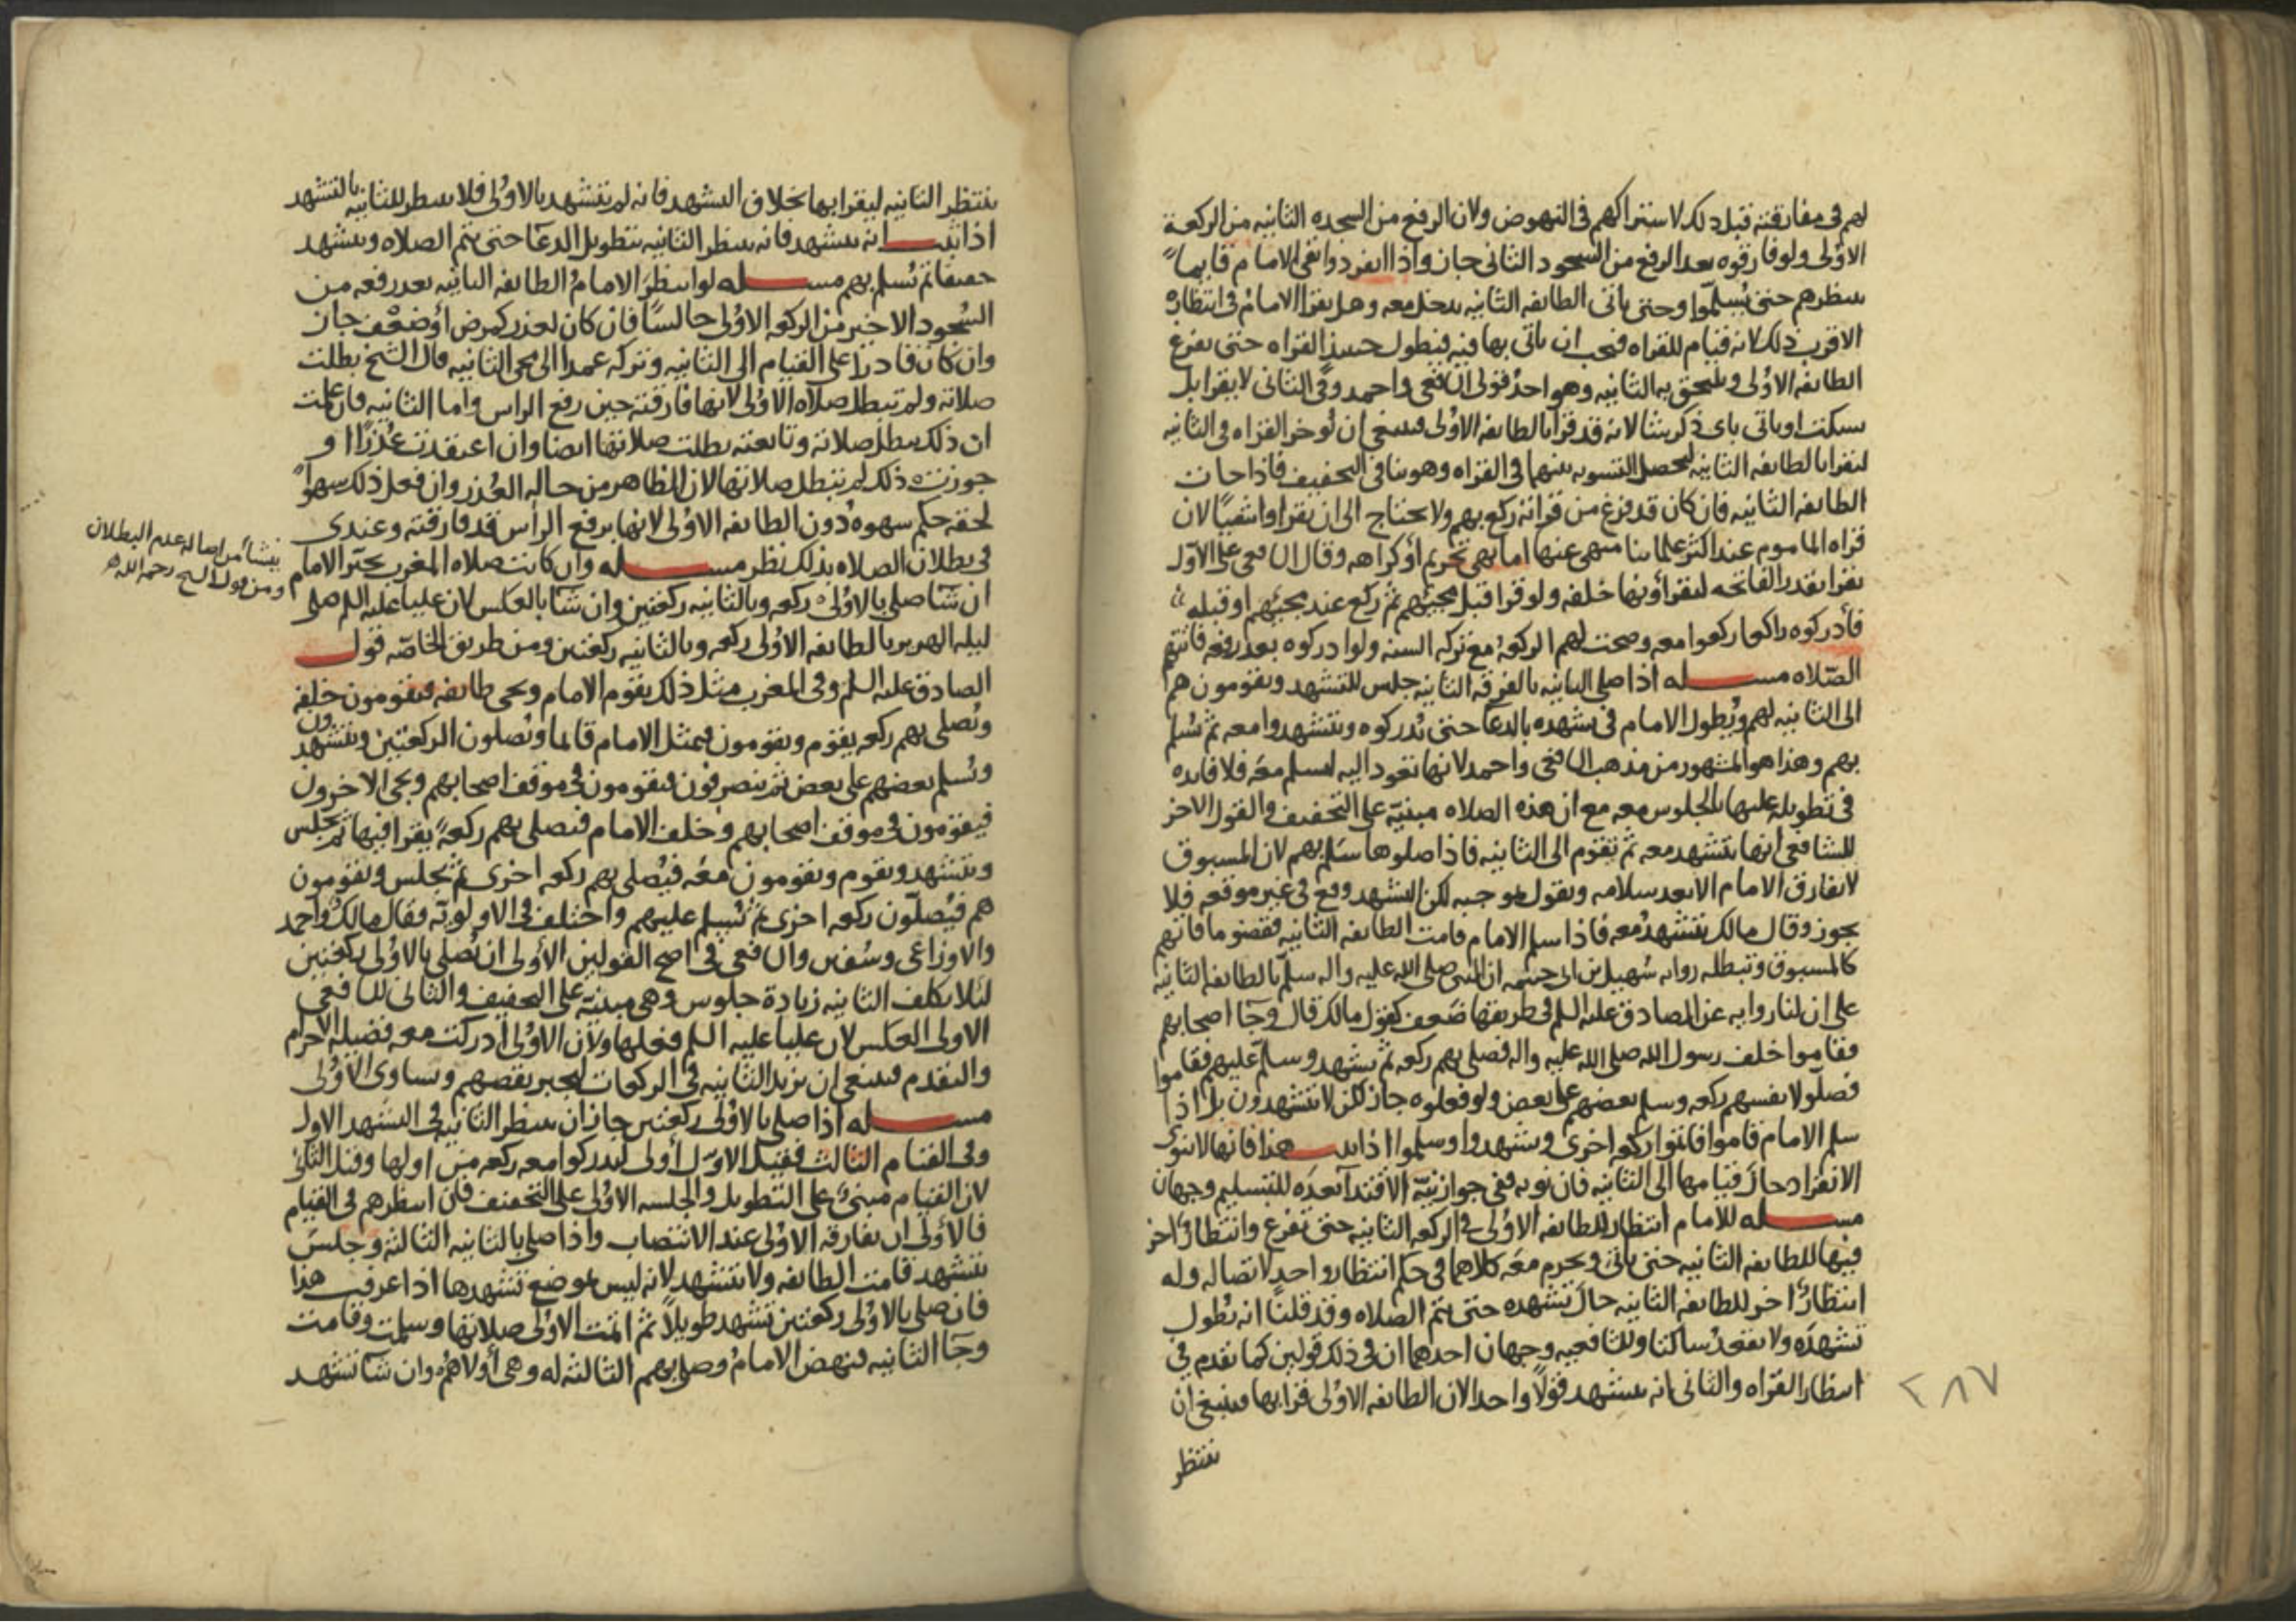 لهم في مفارقته قبل ذلك لاشتراكهم في النهوض ولان الرفع من السجده الثانيه من الركعة
الاولى ولو فارقوه بعد الرفع من السجود الثاني جاز واذا انفردوا بقي الامام قايما
ينتظرهم حتى يسلموا وحتى ياتي الطايفه الثانيه يدخل معه وهل يقرا الامام في انتظاره
الاقرب ذلك لانه قيام للقراه فيجب ان ياتي بها فيه فيطول حينئذ القراه حتى يفرغ
الطايفه الاولى ويلتحق به الثانيه وهو احد قولي الشافعي واحمد وفي الثاني لا يقرا بل
يسكت او ياتي باي ذكر شا لانه قد قرا بالطايفه الاولى فينبغي ان يوخر القراه في الثانيه
ليقرا بالطايفه الثانيه ليحصل التسويه بينهما في القراه وهو ينافي التخفيف فاذا جات
الطايفه الثانيه فان كان قد فرغ من قراته ركع بهم ولا يحتاج الى ان يقرا وا شيا لان
قراه الماموم عند اكثر علمائنا منهي عنها اما نهي تحريم او كراهه وقال الشافعي على الاول
يقرا بقدر الفاتحه ليقراونها خلفه ولو قرا قبل مجيئهم ثم ركع عند مجيئهم او قبله
فادركوه راكعا ركعوا معه وصحت لهم الركعة مع تركه السنه ولو ادركوه بعد رفعه فاتتهم
الصلاه مسله اذا صلى الثانيه بالفرقه الثانيه جلس للتشهد ويقومون هم
الى الثانيه لهم ويطول الامام في تشهده بالدعا حتى يدركوه ويتشهدوا معه ثم يسلم
بهم وهذا هو المشهور من مذهب الشافعي واحمد لانها تعود اليه ليسلم معه فلا فايده
في تطويله عليها بالجلوس معه مع ان هذه الصلاه مبنيه على التخفيف والقول الاخر
للشافعي انها يتشهد معه ثم تقوم الى الثانيه فاذا صلوها سلم بهم لان المسبوق
لا يفارق الامام الا بعد سلامه ونقول بموجبه لكن التشهد وقع في غير موقعه فلا
يجوز وقال مالك يتشهد معه فاذا سلم الامام قامت الطايفه الثانيه فقضو ما فاتهم
كالمسبوق وتبطله روايه سهيل بن ابي حثمه ان النبي صلى الله عليه واله سلم بالطايفه الثانيه
على ان لنا روايه عن الصادق عليه السلم في طريقها ضعف كقول مالك قال وجا اصحابهم
فقاموا خلف رسول الله صلى الله عليه واله فصلى بهم ركعه ثم تشهد وسلم عليهم فقاموا
فصلوا لانفسهم ركعه وسلم بعضهم على بعض ولو فعلوه جاز لكن لا يتشهدون بل اذا
سلم الامام قاموا فاتوا ركعه اخرى وتشهدوا وسلموا اذا ثبت هذا فانها لا تنوي
الانفراد حال قيامها الى الثانيه فان نوته ففي جواز نية الاقتدا بعده للتسليم وجهان
مسله للامام انتظار للطايفه الاولى في الركعه الثانيه حتى تفرغ وانتظار اخر
فيها للطايفه الثانيه حتى ياتي ويحرم معه كلاهما في حكم انتظار واحد لاتصاله وله
انتظار اخر للطايفه الثانيه حال تشهده حتى يتم الصلاه وقد قلنا انه يطول
تشهده ولا يقعد ساكتا وللشافعيه وجهان احدهما ان في ذلك قولين كما تقدم في
انتظار القراه والثاني انه يتشهد قولا واحدا لان الطايفه الاولى قرا بها فينبغي ان
ينتظر
٢٨٧
ينتظر الثانيه ليقرا بها بخلاف التشهد فانه لم يتشهد بالاولى فلا ينتظر للثانيه بالتشهد
اذا ثبت انه يتشهد فانه ينتظر الثانيه بتطويل الدعا حتى يتم الصلاه ويتشهد
خفيفا ثم يسلم بهم مسله لو انتظر الامام الطايفه الثانيه بعد رفعه من
السجود الاخير من الركعه الاولى جالسا فان كان لعذر كمرض او ضعف جاز
وان كان قادرا على القيام الى الثانيه وتركه عمدا الى مجي الثانيه قال الشيخ بطلت
صلاته ولم تبطل صلاه الاولى لانها فارقته حين رفع الراس واما الثانيه فان علمت
ان ذلك يبطل صلاته وتابعته بطلت صلاتها ايضا وان اعتقدت عذرا او
جوزت ذلك لم تبطل صلاتها لان الظاهر من حاله العذر وان فعل ذلك سهوا
لحقه حكم سهوه دون الطايفه الاولى لانها برفع الراس قد فارقته وعندي
في بطلان الصلاه بذلك نظر مسله وان كانت صلاه المغرب تخير الامام
ينشا من اصاله عدم البطلان
ومن قول الشيخ رحمه الله
ان شا صلى بالاولى ركعه وبالثانيه ركعتين وان شا بالعكس لان عليا عليه السلم صلى
ليله الهرير بالطايفه الاولى ركعه وبالثانيه ركعتين ومن طريق الخاصه قول
الصادق عليه السلم وفي المغرب مثل ذلك يقوم الامام ويجي طايفه فيقومون خلفه
ويصلي بهم ركعه يقوم ويقومون فيمثل الامام قايما ويصلون الركعتين ويتشهدون
ويسلم بعضهم على بعض ثم ينصرفون فيقومون في موقف اصحابهم ويجي الاخرون
فيقومون في موقف اصحابهم وخلف الامام فيصلي بهم ركعة يقرا فيها ثم يجلس
ويتشهد ويقوم ويقومون معه فيصلي بهم ركعه اخرى ثم يجلس ويقومون
هم فيصلون ركعه اخرى ثم يسلم عليهم واختلف في الاولويه فقال مالك واحمد
والاوزاعي وسفين والشافعي في اصح القولين الاولى ان يصلي بالاولى ركعتين
لئلا يكلف الثانيه زيادة جلوس وهي مبنيه على التخفيف والثاني للشافعي
الاولى العكس لان عليا عليه السلم فعلها ولان الاولى ادركت معه فضيله الاحرام
والتقدم فينبغي ان يزيد الثانيه في الركعات لجبر نقصهم وتساوى الاولى
مسله اذا صلى بالاولى ركعتين جاز ان ينتظر الثانيه في التشهد الاول
وفي القيام الثالث فقيل الاول اولى ليدركوا معه ركعه من اولها وقيل الثاني
لان القيام مبني على التطويل والجلسه الاولى على التخفيف فان انتظرهم في القيام
فالاولى ان يفارقه الاولى عند الانتصاب واذا صلى بالثانيه الثالثه وجلس
يتشهد قامت الطايفه ولا يتشهد لانه ليس موضع تشهدها اذا عرفت هذا
فان صلى بالاولى ركعتين تشهد طويلا ثم اتمت الاولى صلاتها وسلمت وقامت
وجا الثانيه فنهض الامام وصلى بهم الثالثه له وهي اولاهم وان شا تشهد